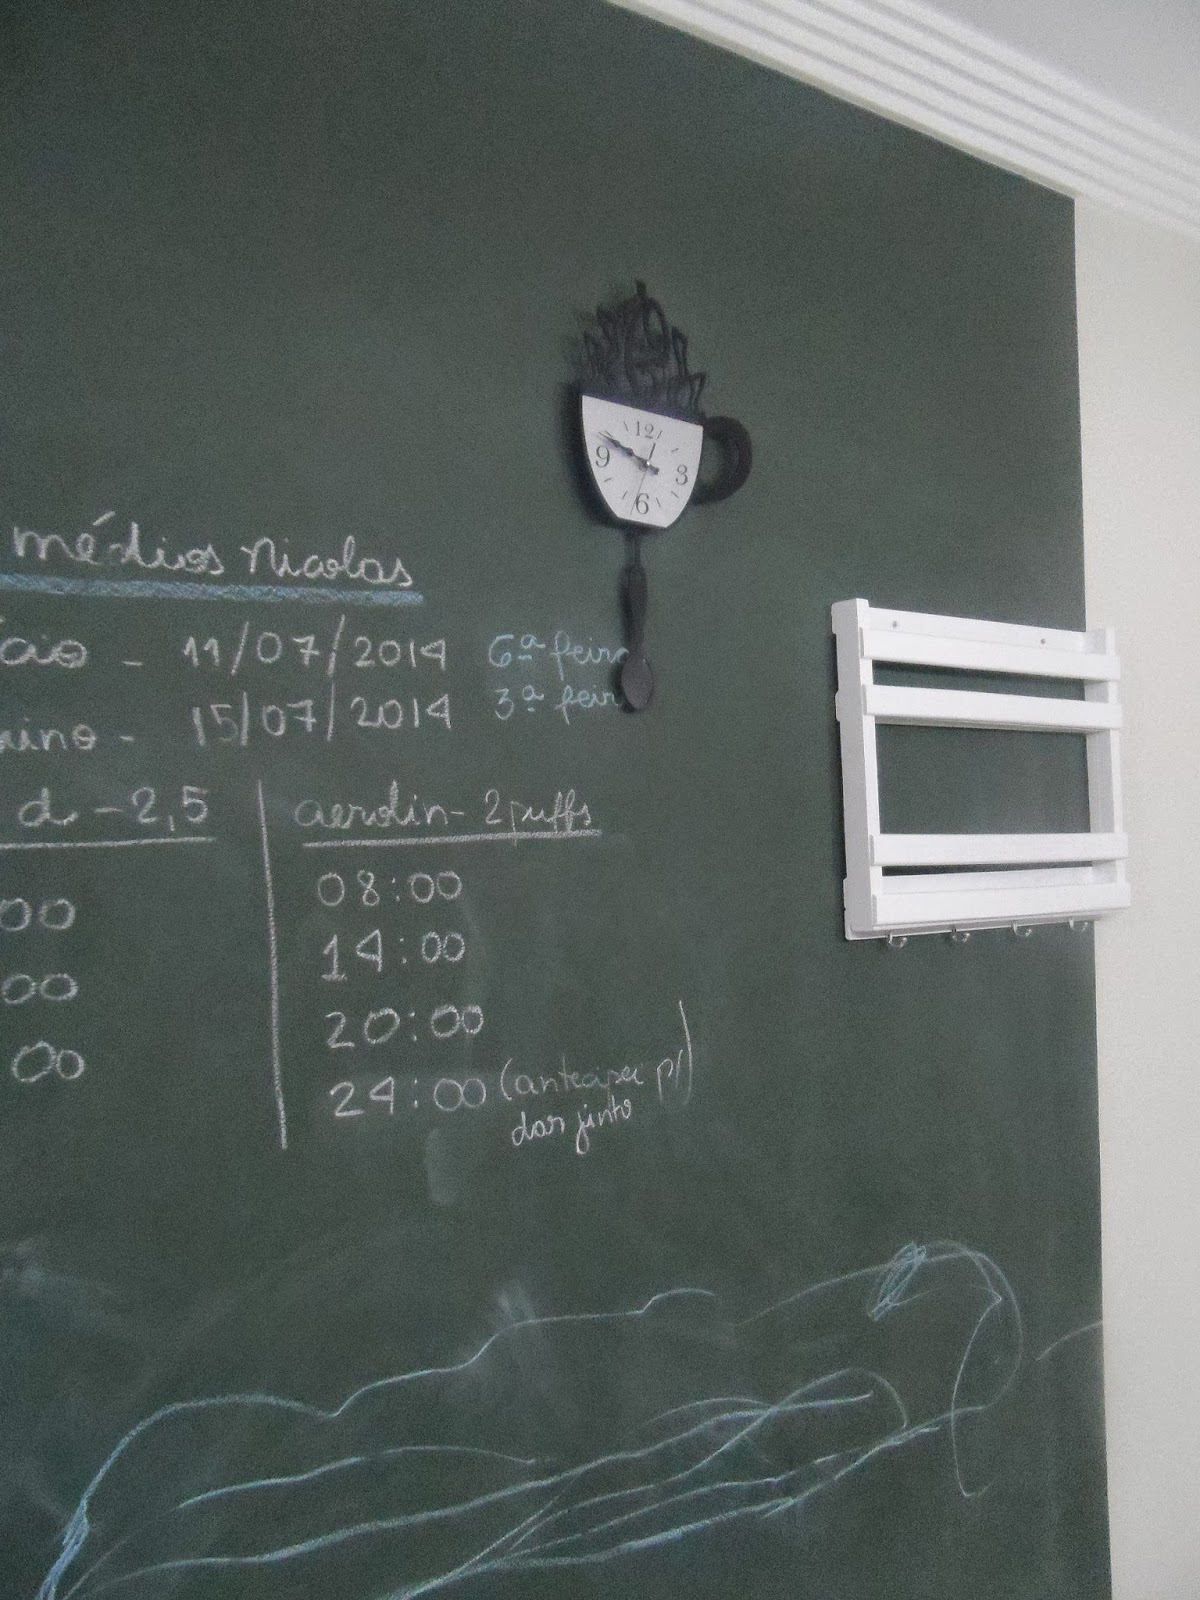 12
9 3
6
médios Nicolas
cio - 11/07/2014 6ª feira
mino - 15/07/2014 3ª feira
d - 2,5
aerolin - 2 puffs
00
00
00
08:00
14:00
20:00
24:00 (antecipar p/)
dar junto